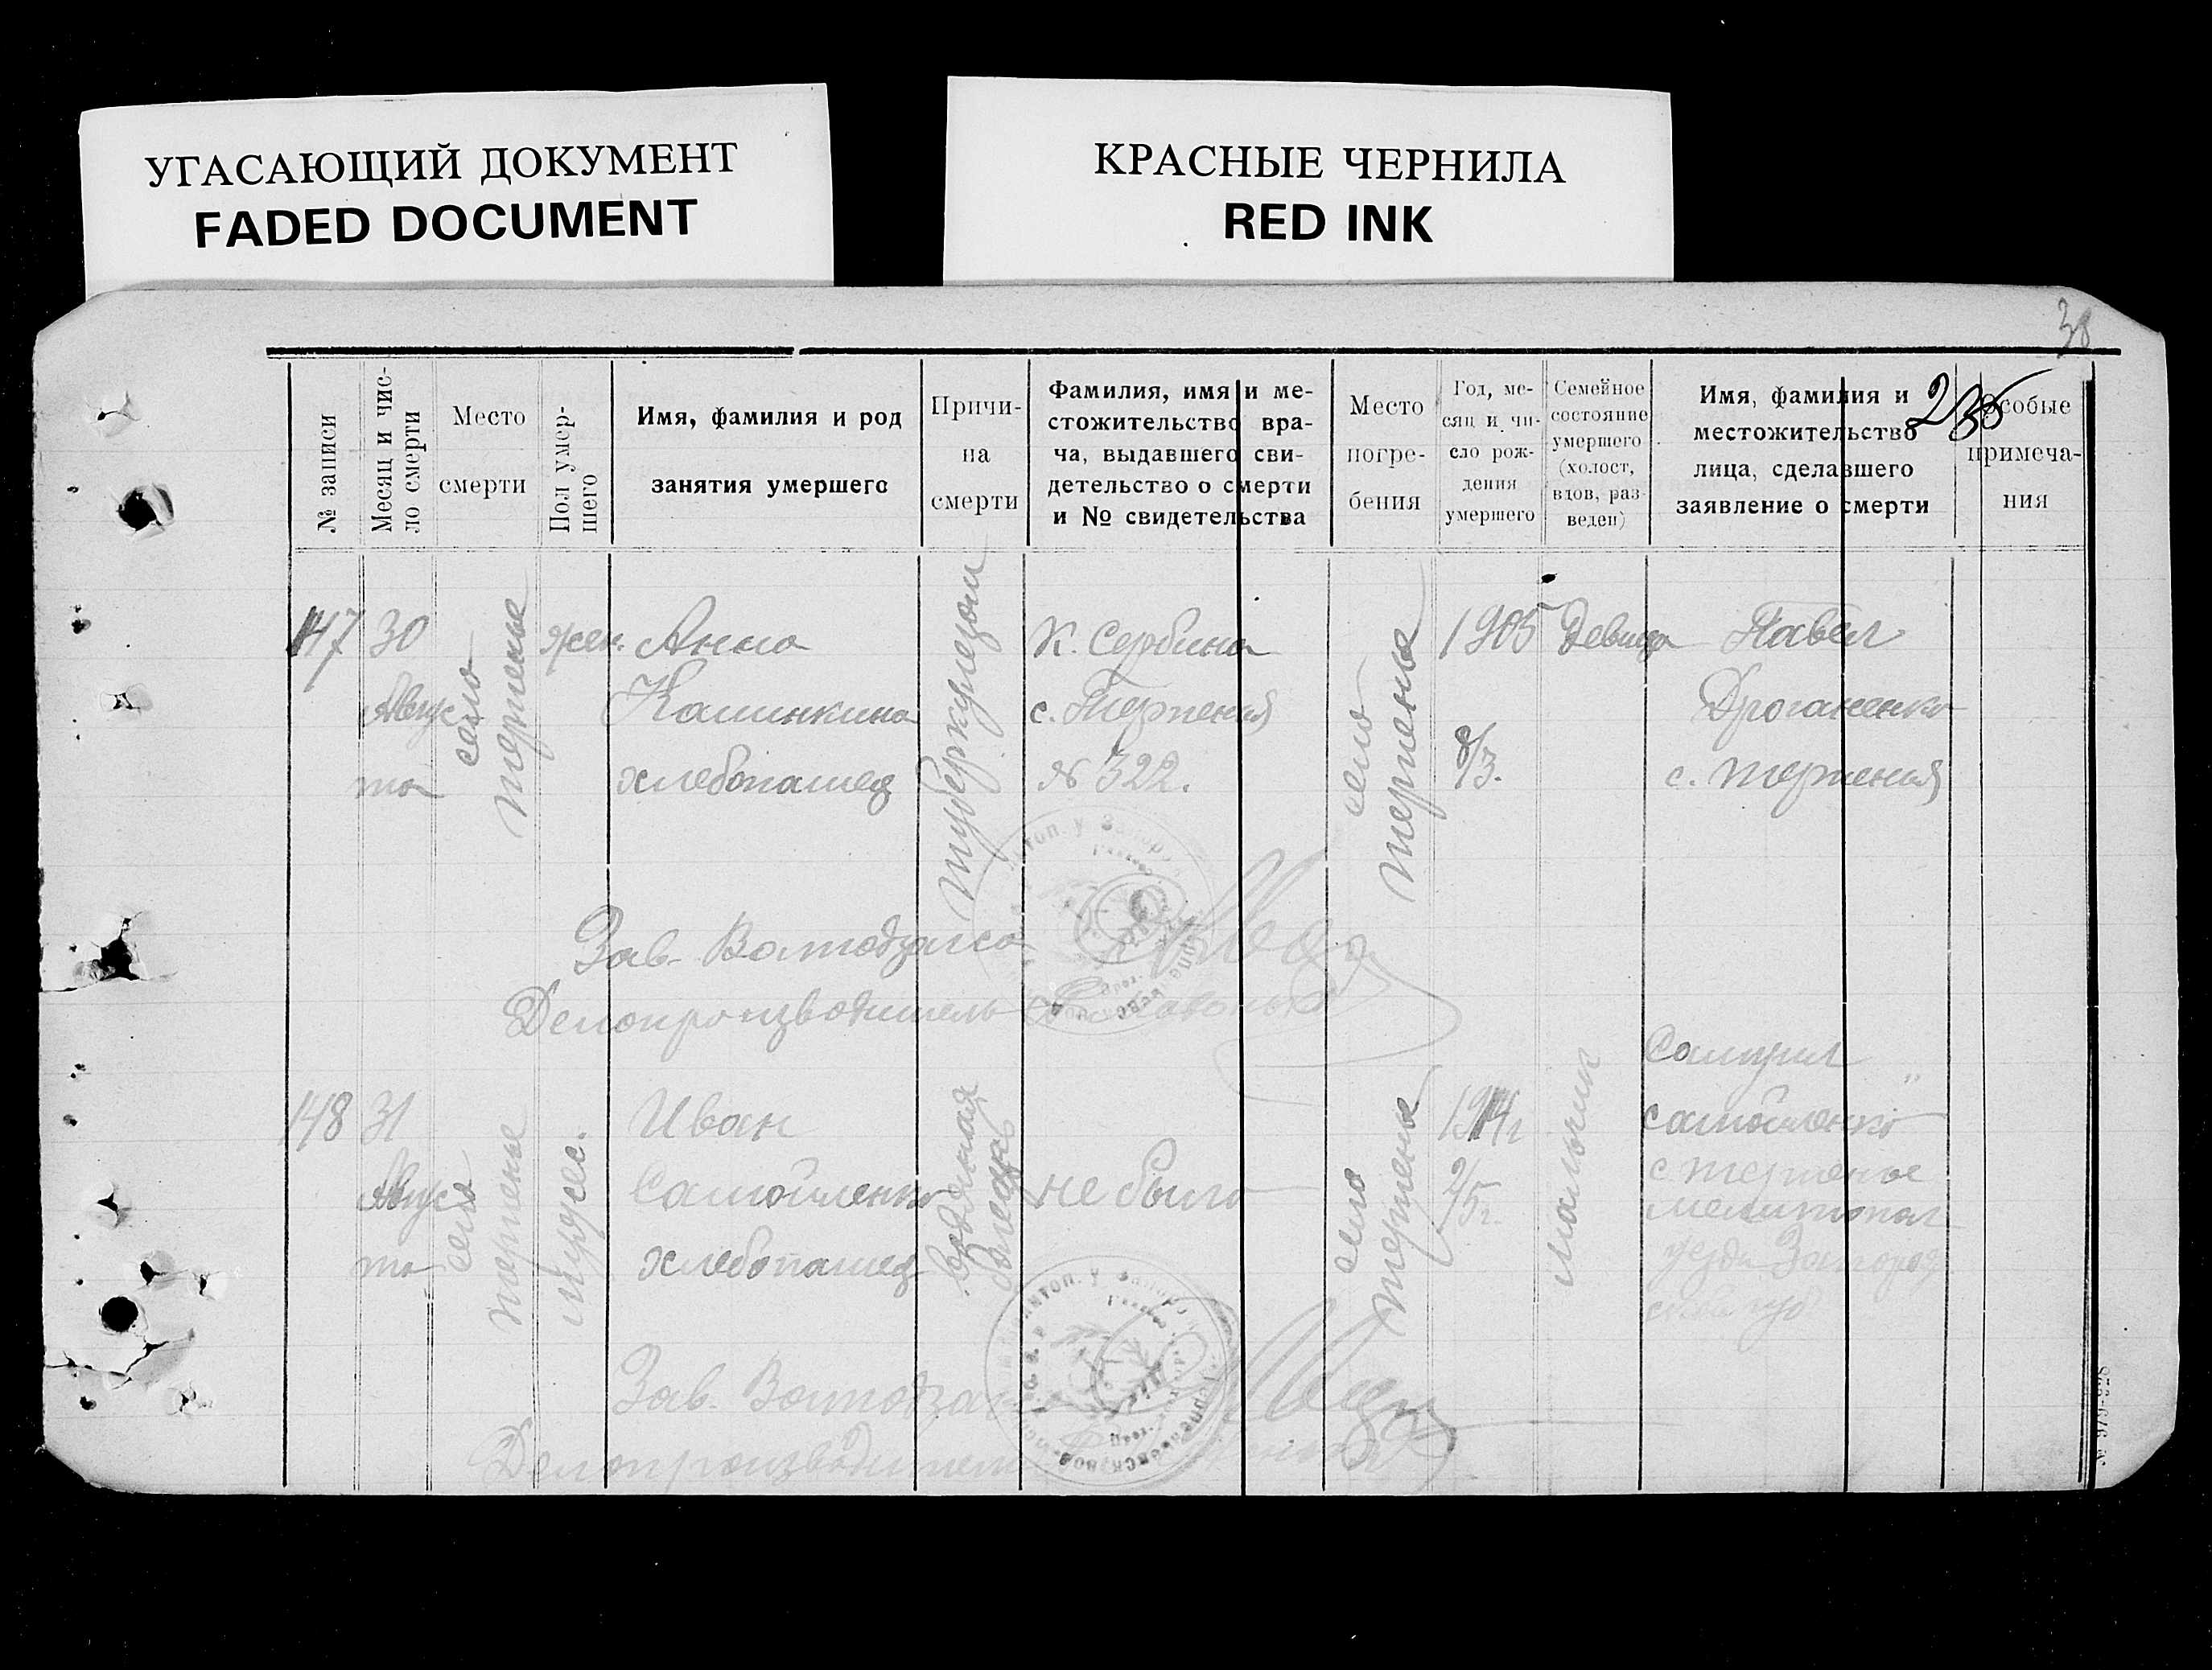 УГАСАЮЩИЙ ДОКУМЕНТ
FADED DOCUMENT
КРАСНЫЕ ЧЕРНИЛА
RED INK
38
235
№ записи
Месяц и чис-
ло смерти
Место
смерти
Пол умер-
шего
Имя, фамилия и род
занятия умершего
Причи-
на
смерти
Фамилия, имя и ме-
стожительство вра-
ча, выдавшего сви-
детельство о смерти
и № свидетельства
Место
погре-
бения
Год, ме-
сяц и чи-
сло рож-
дения
умершего
Семейное
состояние
умершего
(холост,
вдов, раз-
веден)
Имя, фамилия и
местожительство
лица, сделавшего
заявление о смерти
Особые
примеча-
ния
147
30
Авгус
та
село
терпенье
жен.
Анна
Калинкина
хлебопашец
туберкулезом
К. Сербина
с. Терпения
№ 322.
село
терпенье
1905
8/3.
девица
Павел
Дроганенко
с. терпения
Зав. Волподзагса
Делопроизводитель
148
31
Авгус
та
село
терпенье
мужес.
Иван
Самойленко
хлебопашец
водяная
болезнь
не было
село
терпенье
1914г
2/5г.
мальчик
Самуил
самойленко
с терпенье
мелитопол
уезда Запорож
ской губ
Зав. Волподзагса
Делопроизводитель
№ 979-628